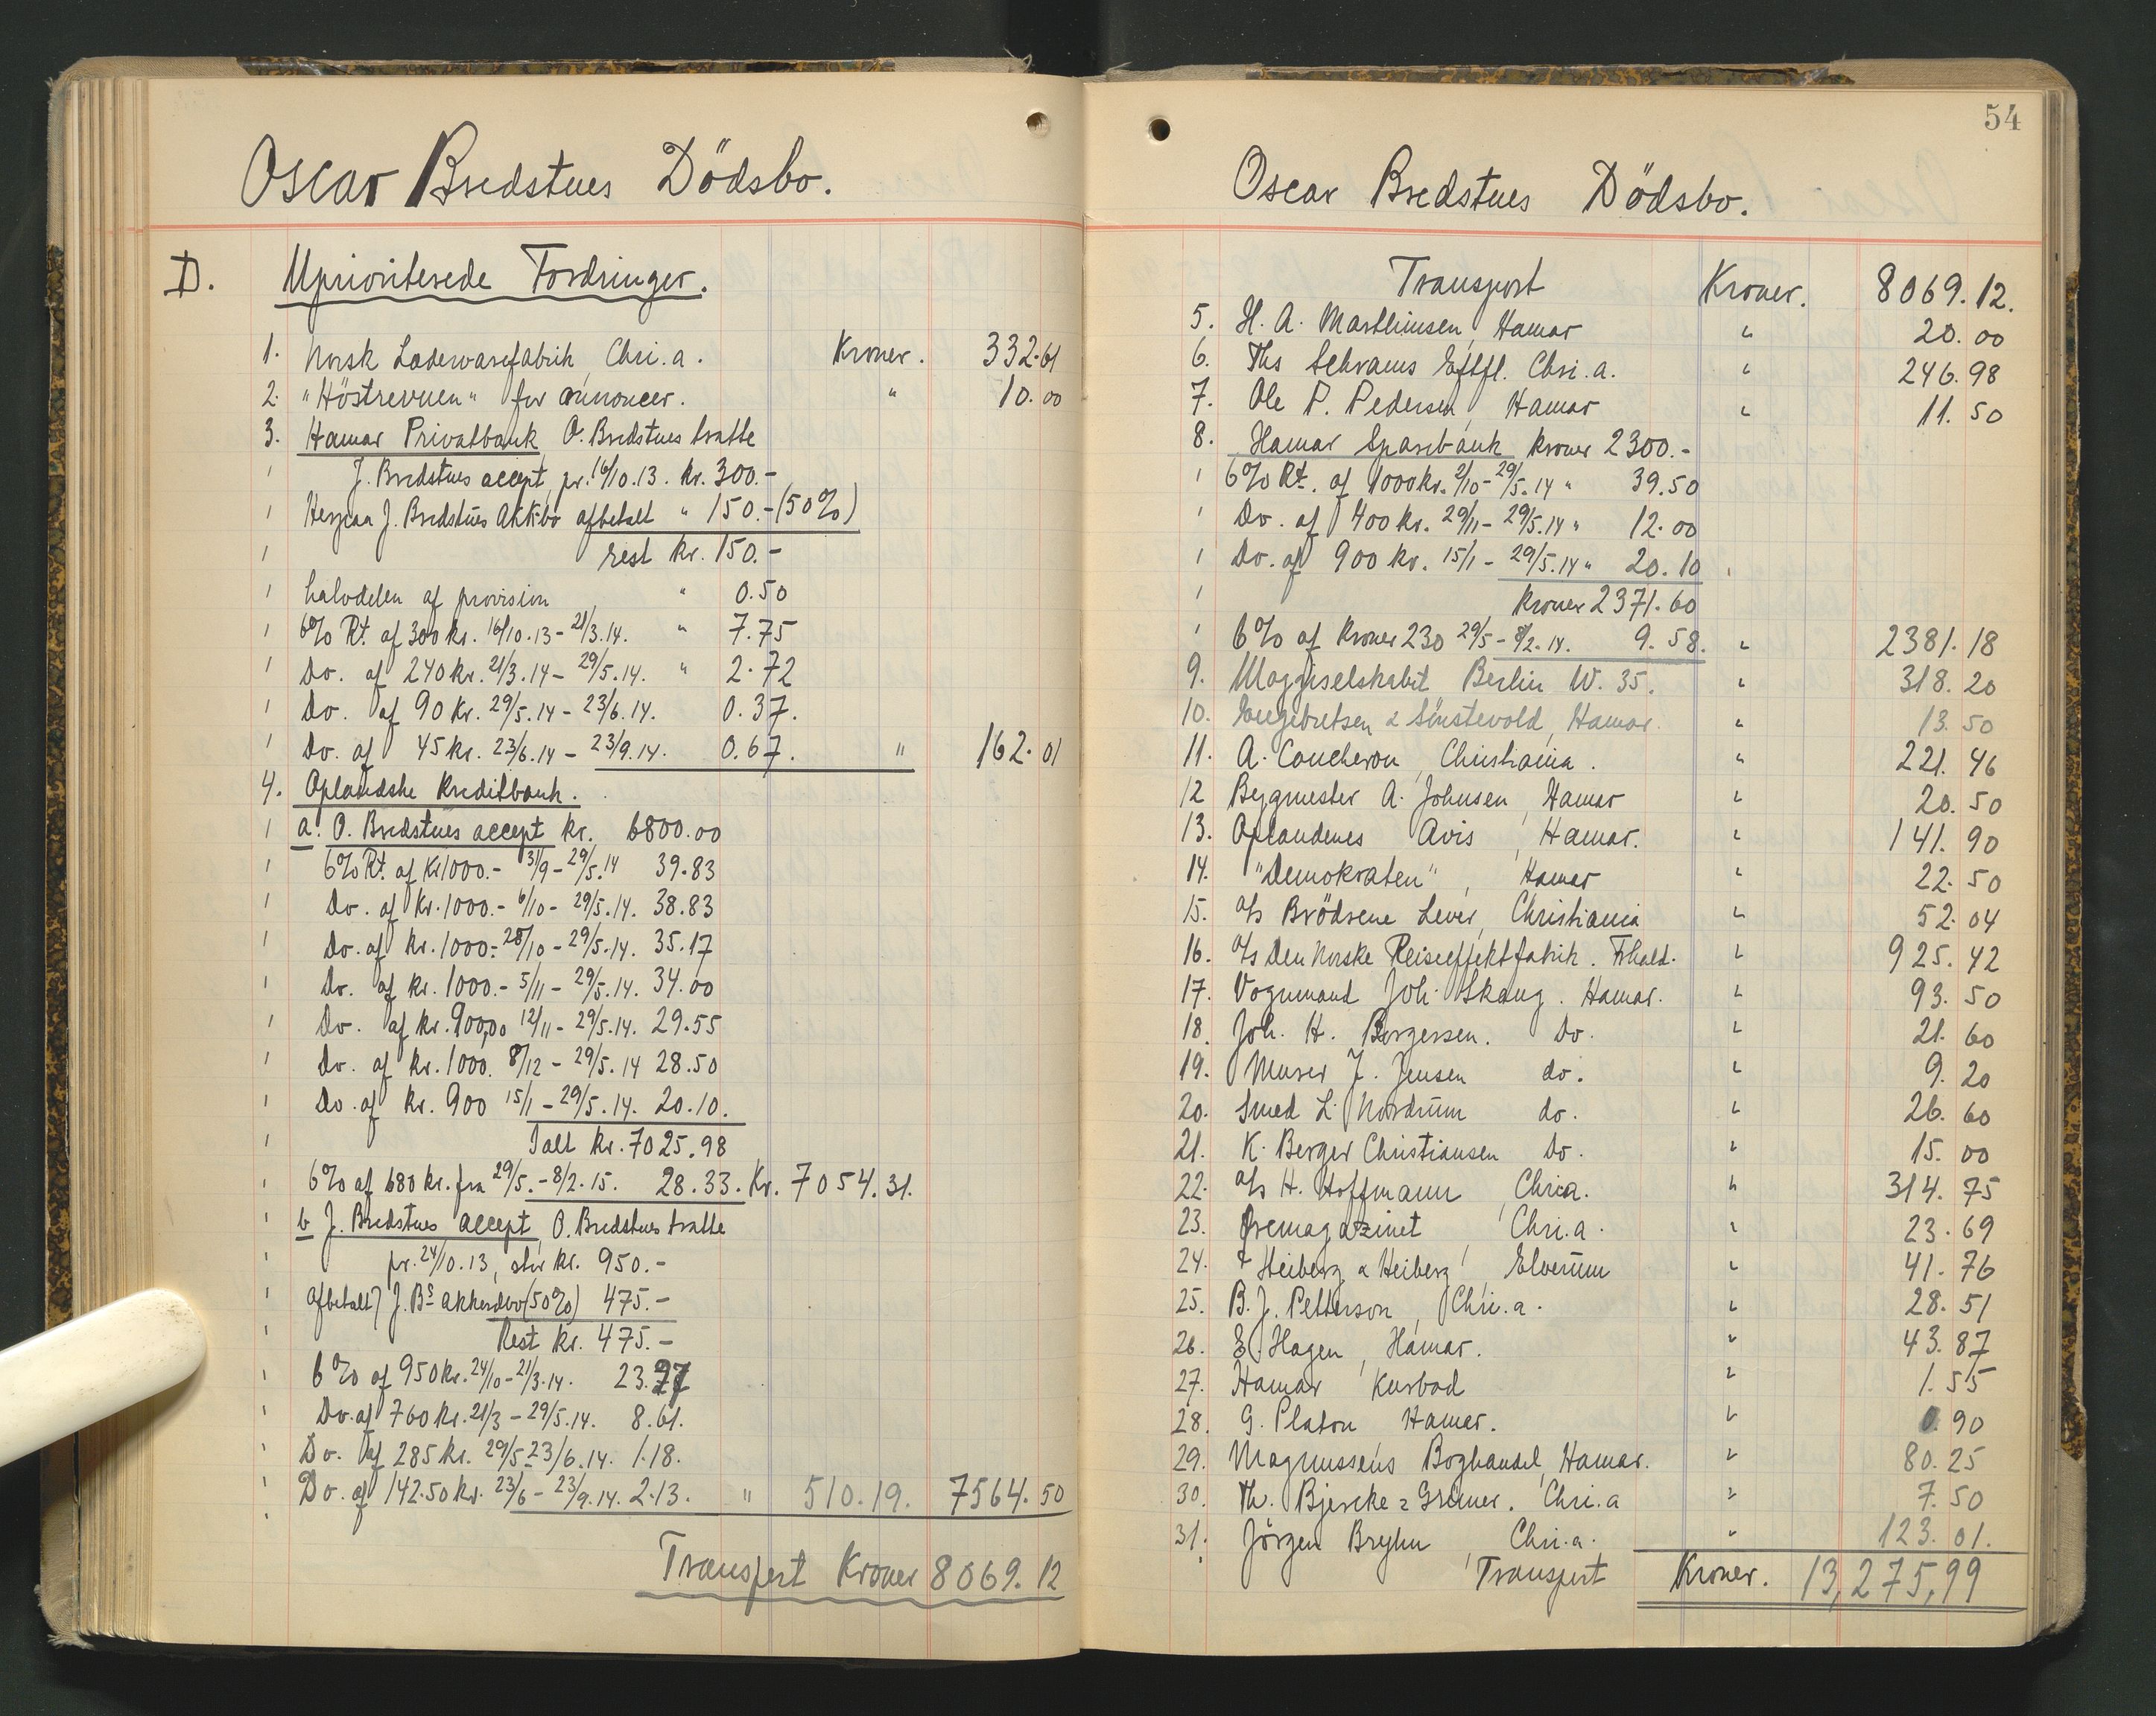 Oscar Bredstues Dödsbo.
D. Uprioriterede Fordringer.
1. Norsk Lædervarefabrik, Chri.a. Kroner. 332.61
2. "Höstrevuen" for annoncer. " 10.00
3. Hamar Privatbank, O. Bredstues tratte
J. Bredstues accept, pr. 16/10.13. kr. 300.-
Herpaa J. Bredstues Akk.bo afbetalt " 150.- (50%)
rest kr. 150.-
halvdelen af provision " 0.50
6% Rt. af 300 kr. 16/10.13 - 21/3.14. " 7.75
Do. af 240 kr. 21/3.14 - 29/5.14. " 2.72
Do. af 90 kr. 29/5.14 - 23/6.14. 0.37.
Do. af 45 kr. 23/6.14 - 23/9.14. 0.67. " 162.01
4. Oplandske Kreditbank.
a. O. Bredstues accept kr. 6800.00
6% Rt. af Kr 1000.- 31/9 - 29/5.14 39.83
Do. af Kr. 1000.- 6/10 - 29/5.14. 38.83
Do. af kr. 1000.- 28/10 - 29/5.14. 35.17
Do. af kr. 1000.- 5/11 - 29/5.14. 34.00
Do. af kr. 900,00 12/11 - 29/5.14. 29.55
Do. af kr. 1000. 8/12 - 29/5.14 28.50
Do. af kr. 900 15/1 - 29/5.14. 20.10.
Ialt kr. 7025.98
6% af 680 kr. fra 29/5. - 8/2.15. 28.33. Kr. 7054.31.
b J. Bredstues accept, O. Bredstues tratte
pr. 24/10.13, stor kr. 950.-
afbetalt J. Bs akkordbo (50%) 475.-
Rest kr. 475.-
6% af 950 kr. 24/10 - 21/3.14. 23.27
Do. af 760 kr. 21/3 - 29/5.14. 8.61.
Do. af 285 kr. 29/5 - 23/6.14. 1.18.
Do. af 142.50 kr. 23/6 - 23/9.14. 2.13. " 510.19. 7564.50
Transport Kroner 8069.12
54
Oscar Bredstues Dödsbo.
Transport Kroner. 8069.12.
5. H. A. Marthinsen, Hamar " 20.00
6. Ths Schrams Eftfl. Chri.a. " 246.98
7. Ole P. Pedersen, Hamar " 11.50
8. Hamar Sparebank kroner 2300.-
6% Rt. af 1000 kr. 2/10 - 29/5.14 " 39.50
Do. af 400 kr. 29/11 - 29/5.14 " 12.00
Do. af 900 kr. 15/1 - 29/5.14 " 20.10
Kroner 2371.60
6% af kroner 230 29/5 - 8/2.14. 9.58. " 2381.18
9. Maggiselskabet, Berlin W. 35. " 318.20
10. Engebretsen & Sönstevold, Hamar. " 13.50
11. A. Coucheron, Christiania. " 221.46
12 Bygmester A. Johnsen, Hamar " 20.50
13. Oplandenes Avis, Hamar. " 141.90
14. "Demokraten", Hamar " 22.50
15. a/s Brödrene Lever, Christiania " 52.04
16. a/s Den Norske Reiseeffektfabrik. Frhald. " 925.42
17. Vognmand Joh. Skaug. Hamar. " 93.50
18. Joh. H. Børgersen. Do. " 21.60
19. Murer J. Jensen do. " 9.20
20. Smed L. Nordrum do. " 26.60
21. K. Berger Christiansen Do. " 15.00
22. a/s H. Hoffmann, Chria. " 314.75
23. Præmagazinet, Chri.a. " 23.69
24. Heiberg & Heiberg, Elverum " 41.76
25. B. J. Petterson, Chri.a. " 28.51
26. E. Hagen, Hamar. " 43.87
27. Hamar Kurbad " 1.55
28. G. Platou Hamar. " 0.90
29. Magnussens Boghandel, Hamar. " 80.25
30. Th. Bjercke & Greiner. Chri.a " 7.50
31. Jörgen Bryhn, Chri.a. " 123.01.
Transport Kroner. 13,275,99